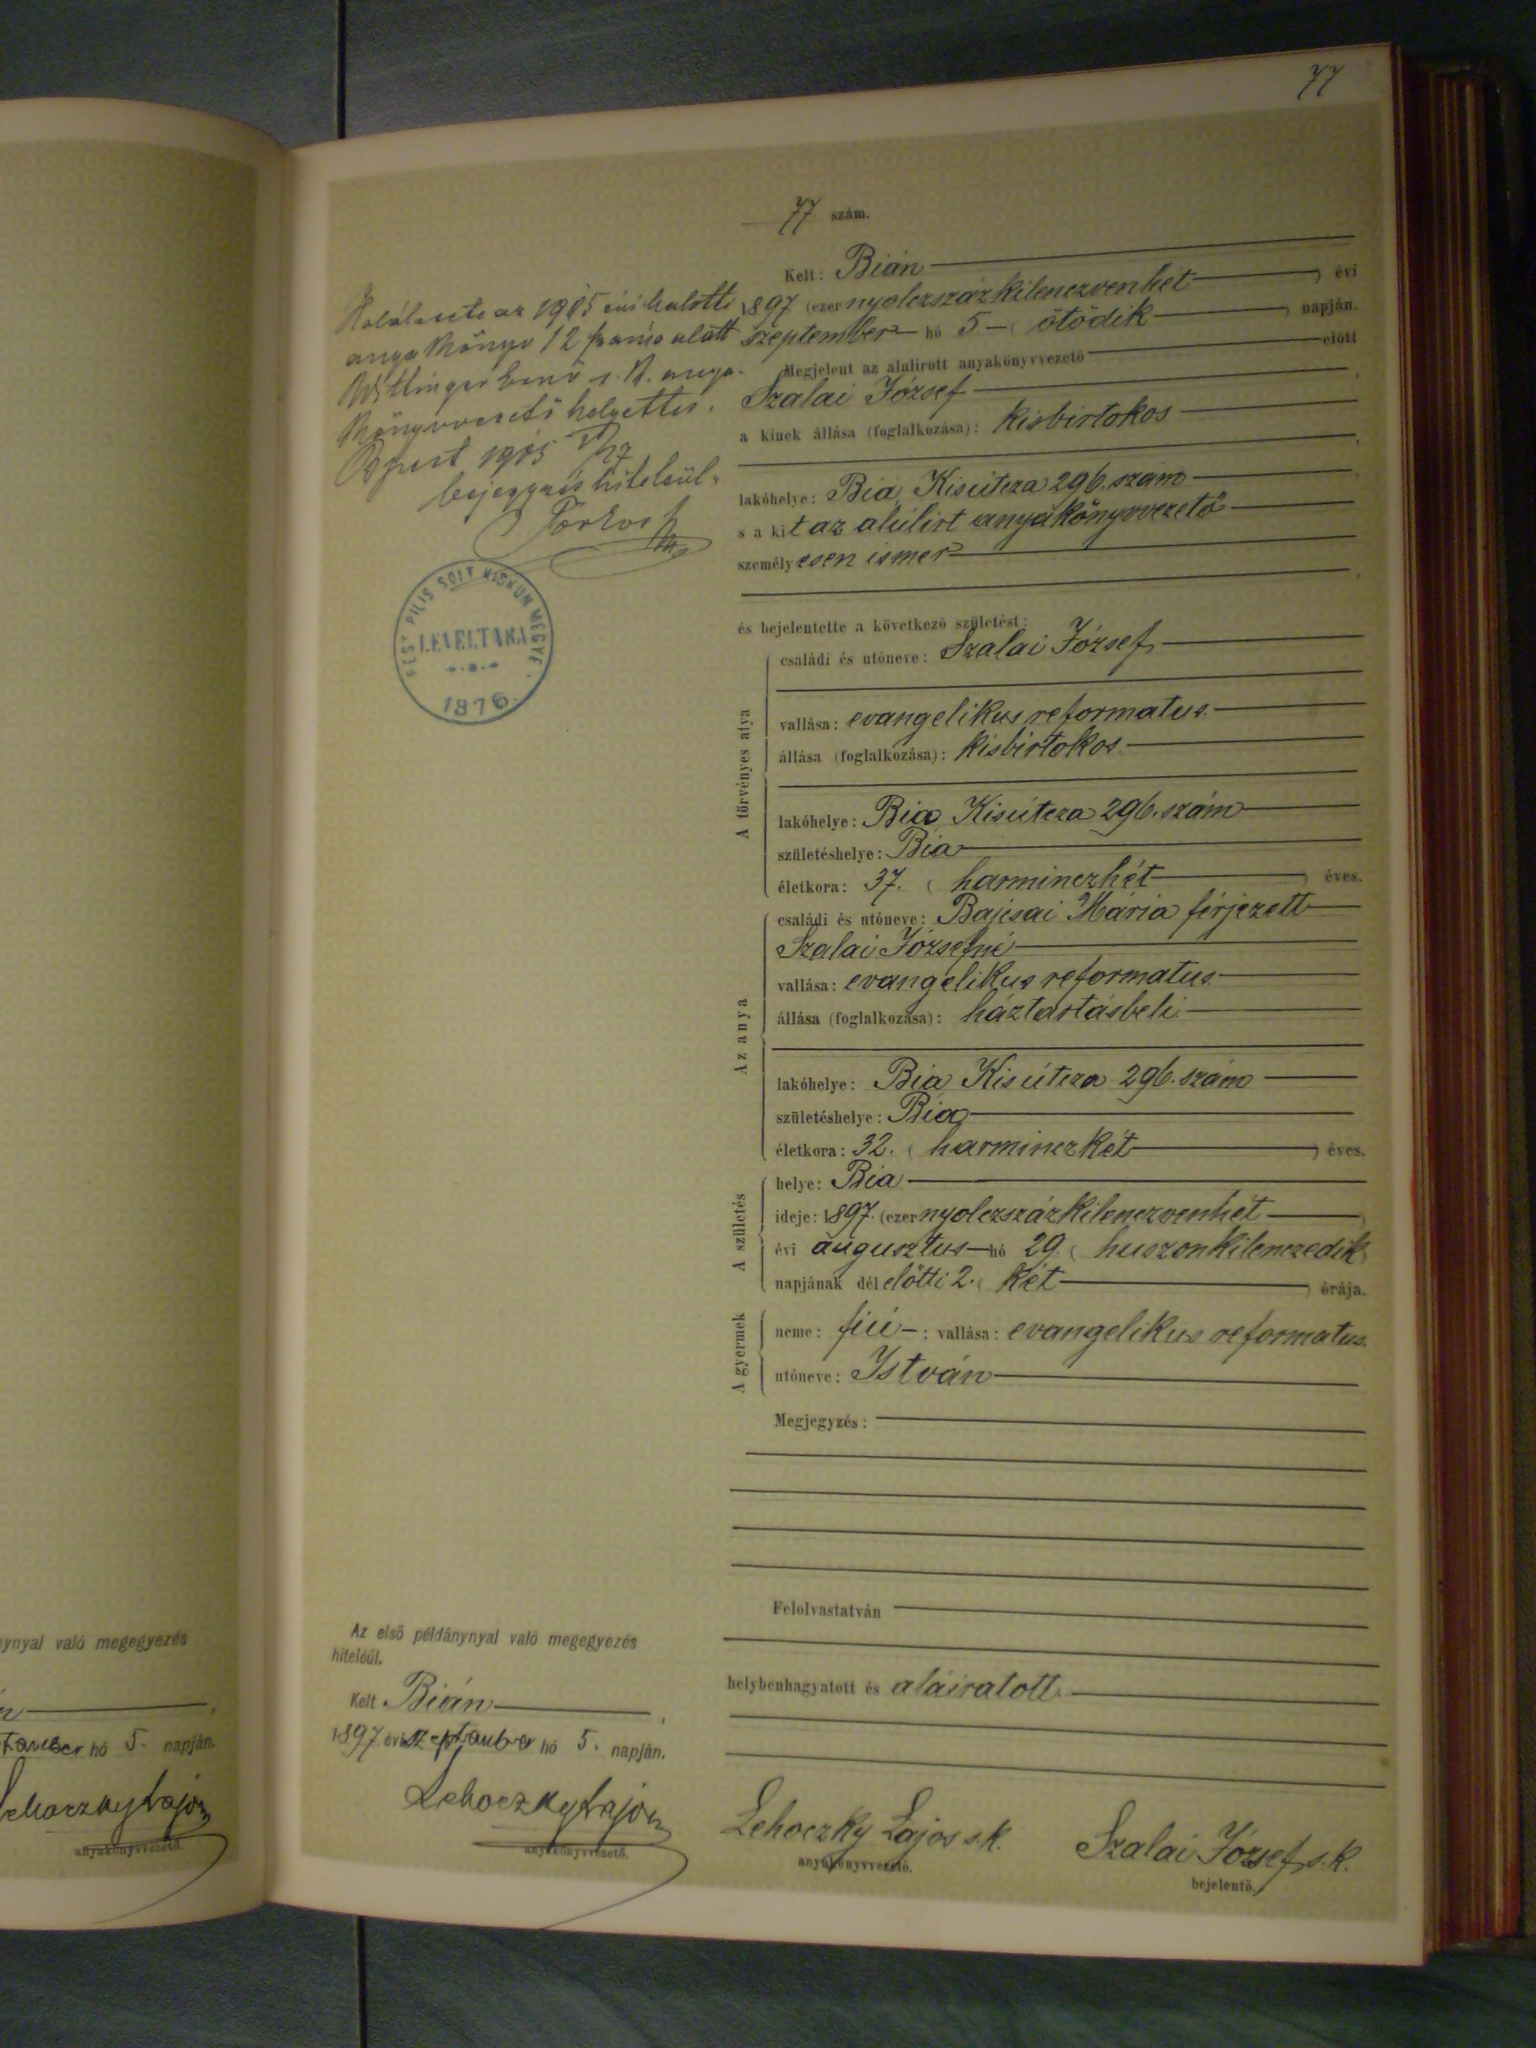 77
77 szám.
Kelt: Bián
1897 (ezer nyolczszázkilenczvenhét) évi
szeptember hó 5 (ötödik) napján.
Megjelent az alulirott anyakönyvvezető előtt
Szalai József,
a kinek állása (foglalkozása): kisbirtokos
lakóhelye: Bia, Kisútcza 296. szám
s a kit az alúlirt anyakönyvvezető
személyesen ismer
és bejelentette a következő születést:
A törvényes atya
családi és utóneve: Szalai József
vallása: evangelikus reformatus
állása (foglalkozása): kisbirtokos
lakóhelye: Bia Kisútcza 296. szám
születéshelye: Bia
életkora: 37. (harminczhét) éves.
Az anya
családi és utóneve: Bajcsai Mária férjezett
Szalai Józsefné
vallása: evangelikus reformatus
állása (foglalkozása): háztartásbeli
lakóhelye: Bia Kisútcza 296. szám
születéshelye: Bia
életkora: 32. (harminczkét) éves.
A születés
helye: Bia
ideje: 1897. (ezer nyolczszázkilenczvenhét)
évi augusztus hó 29 (huszonkilenczedik)
napjának dél előtti 2. (két) órája.
A gyermek
neme: fiú; vallása: evangelikus reformatus.
utóneve: István
Megjegyzés:
Felolvastatván
helybenhagyatott és aláiratott.
Lehoczky Lajos s.k.
anyakönyvvezető.
Szalai József s.k.
bejelentő.
1905 évi halotti
anyakönyv 12 szám alatt
anya-
könyvvezető helyettes.
Bpest 1905
bejegyzés hiteléül.
PEST PILIS SOLT KISKUN MEGYE
LEVÉLTÁRA
1876.
Az első példánynyal való megegyezés
hiteléül.
Kelt Bián,
1897 évi szeptember hó 5. napján.
Lehoczky Lajos
anyakönyvvezető.
ynyal való megegyezés
hó 5. napján.
Lehoczky Lajos
anyakönyvvezető.